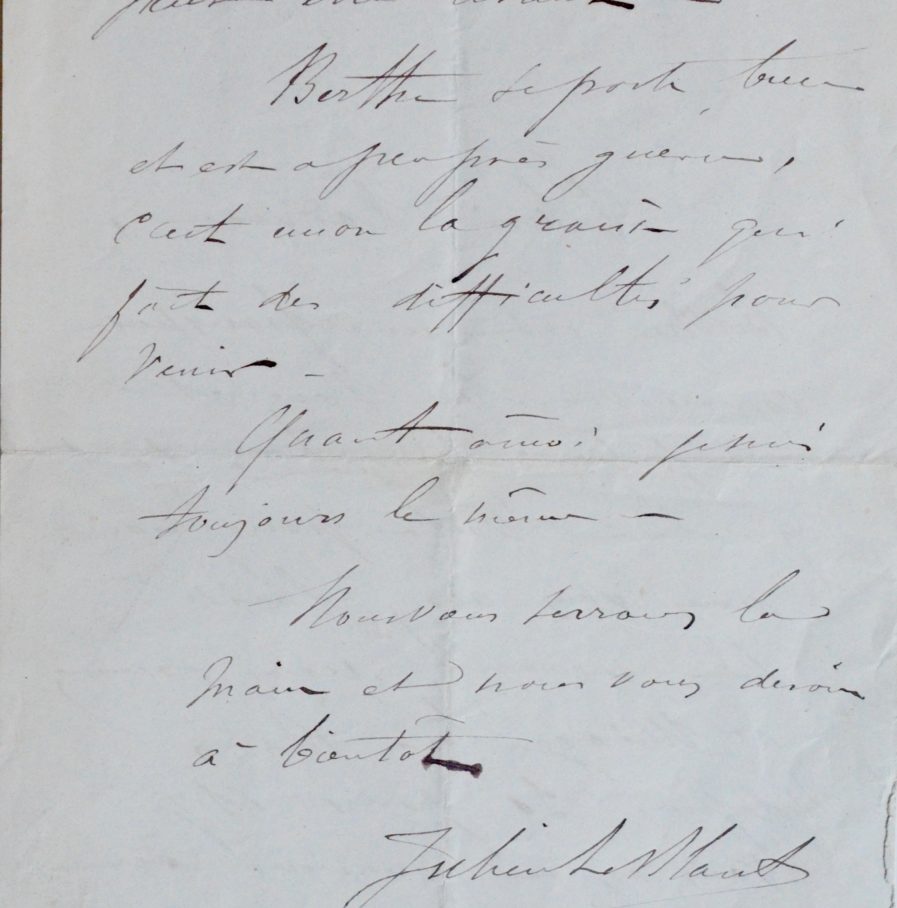 Berthe se porte bien
et est a peu près guérie,
c'est encore la graisse qui
fait des difficultés pour
venir -
Quant à moi je suis
toujours le même -
Nous vous serrons la
main et nous vous disons
à bientôt
Julien Le Blant